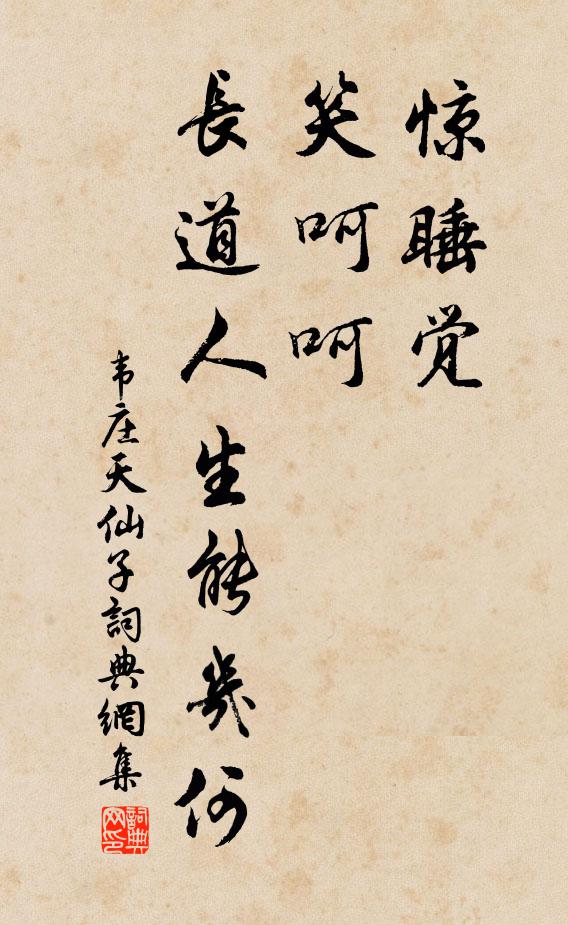 惊睡觉
笑呵呵
長道人生能幾何
韦庄天仙子詞典網集
詞典网印